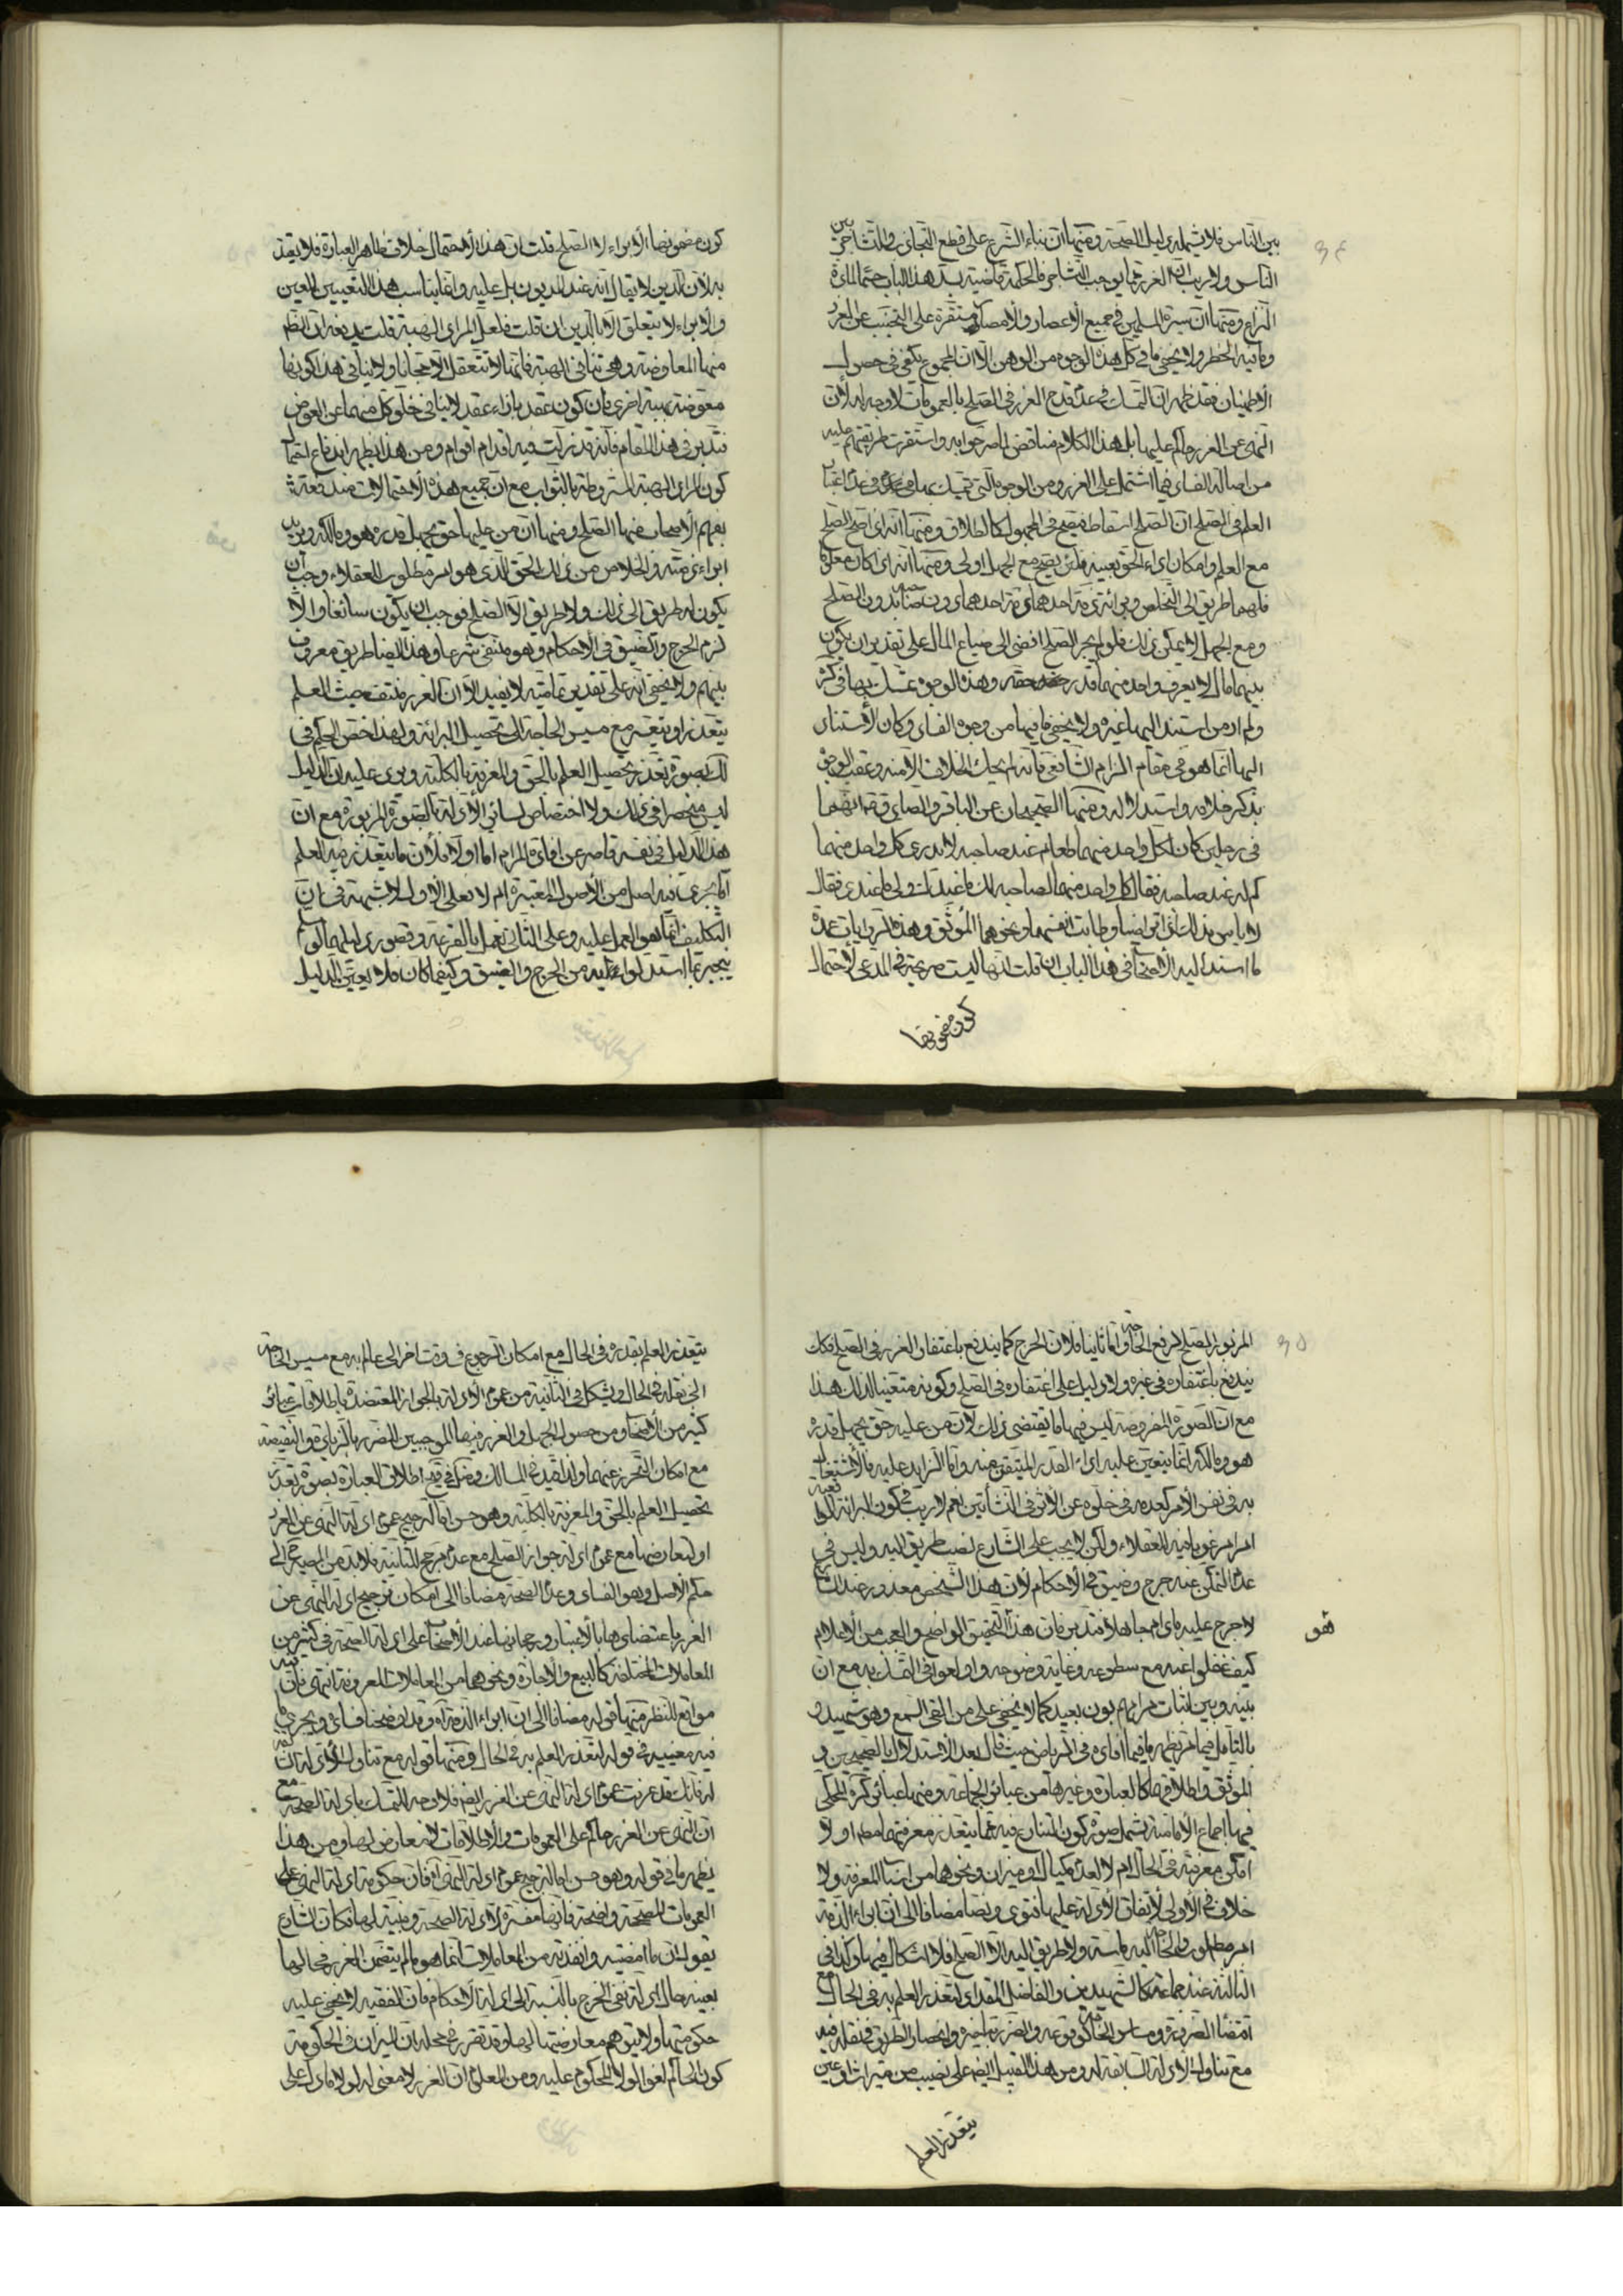 بين الناس فلا يشمله دليل الصحة ومنها ان بناء الشرع على قطع التجاذب والتشاجر بين
الناس ولا ريب ان الغرر مما يوجب التشاجر فالحكمة قاضية بسد هذا الباب حتما لمادة
النزاع ومنها ان سيرة المسلمين في جميع الاعصار والامصار مستقرة على التجنب عن الغرر
وما فيه الخطر ولا يخفى ما في كل هذه الوجوه من الوهن الا ان المجموع يكفي في حصول
الاطمينان فقد ظهر ان التمسك في عدم قدح الغرر في الصلح بالعمومات لا وجه له لان
النهي عن الغرر حاكم عليها بل هذا الكلام مناقض لما صرحوا به واستقرت طريقتهم عليه
من اصالة الفساد فيما اشتمل على الغرر ومن الوجوه التي تمسك بها في عدم اعتبار
العلم في الصلح ان الصلح اسقاط فيصح في المجهول كالطلاق ومنها انه اذا صح الصلح
مع العلم وامكان اداء الحق بعينه فلئن يصح مع الجهل اولى ومنها انه اذا كان معلوما
فلهما طريق الى التخلص وبرائة ذمة احدهما دون صاحبه بدون الصلح
ومع الجهل لا يمكن ذلك فلو لم يجز الصلح افضى الى ضياع المال على تقدير ان يكون
بينهما مال لا يعرف واحد منهما قدر حقه وهذه الوجوه تمسك بها في كرة
ولم ار من استند اليها غيره ولا يخفى ما فيها من وجوه الفساد وكان الاستناد
اليها انما هو في مقام الزام الشافعي فانه لم يحك الخلاف الا منه وعقب الوجوه
بذكر خلافه واستدلاله ومنها الصحيحان عن الباقر والصادق انهما
في رجلين كان لكل واحد منهما طعام عند صاحبه لا يدري كل واحد منهما
كم له عند صاحبه فقال كل واحد منهما لصاحبه لك ما عندك ولي ما عندي فقال
لا باس بذلك اذا تراضيا وطابت انفسهما ونحوهما الموثق وهذه الروايات عمدة
ما استند اليه الاصحاب في هذا الباب ان قلت انها ليست صريحة في المدعى لاحتمال
كون مضمونها
كون مضمونها الابراء لا الصلح قلت ان هذا الاحتمال خلاف ظاهر العبارة فلا يقدح
به لان الدين لا يقال انه عند المديون بل عليه وانما يناسب هذا التعبير العين
والابراء لا يتعلق الا بالدين ان قلت فلعل المراد الهبة قلت يدفعه ان الظاهر
منها المعاوضة وهي تنافي الهبة فانها لا تتعقل الا مجانا ولا ينافي هذا كونها
معوضة بهبة اخرى فان كون عقد بازاء عقد لا ينافي خلو كل منهما عن العوض
فتدبر في هذا المقام فانه قد زلت فيه اقدام اقوام ومن هذا يظهر اندفاع احتمال
كون المراد الهبة المشروطة بالثواب مع ان جميع هذه الاحتمالات مندفعة
بفهم الاصحاب منها الصلح ومنها ان من عليه حق يجهل قدره هو ومالكه ويريد
ابراء ذمته والخلاص من ذلك الحق الذي هو امر مطلوب للعقلاء وجب ان
يكون له طريق الى ذلك ولا طريق الا الصلح فوجب ان يكون سائغا والا
لزم الحرج والضيق في الاحكام وهو منتفي شرعا وهذا ايضا طريق معروف
بينهم ولا يخفى انه على تقدير تماميته لا يفيد الا ان الغرر مغتفر حيث العلم
يتعذر او يتعسر مع مسيس الحاجة الى تحصيل البرائة ولهذا خص الحكم في
لك بصورة تعذر تحصيل العلم بالحق والمعرفة بالكلية ويرد عليه ان الدليل
ليس منحصرا في ذلك ولا اختصاص لسائر الادلة بالصورة المزبورة مع ان
هذا الدليل في نفسه قاصر عن افادة المرام اما اولا فلان ما يتعذر فيه العلم
اما يجري فيه اصل من الاصول المعتبرة ام لا فعلى الاول لا شبهة في ان
التكليف انما هو العمل عليه وعلى الثاني يعمل بالقرعة وقصور دليلها لو سلم
ينجبر بما استدلوا عليه من الحرج والضيق وكيفما كان فلا يعين الدليل
المزبور الصلح لرفع الحاجة واما ثانيا فلان الحرج كما يندفع باغتفار الغرر في الصلح فكك
يندفع باغتفاره في غيره ولا دليل على اغتفاره في الصلح وكونه متعينا لذلك هذا
مع ان الصورة المفروضة ليس فيها ما يقتضي ذلك لان من عليه حق يجهل قدره
هو ومالكه انما يتعين عليه اداء القدر المتيقن منه واما الزايد عليه فالاشتغال
به في نفس الامر كعدمه في خلوه عن الاثر في النشأتين نعم لا ريب في كون البرائة الواقعية
امرا مرغوبا فيه للعقلاء ولكن لا يجب على الشارع نصب طريق اليه وليس في
عدم التمكن عنه حرج وضيق في الاحكام لان هذا الشخص معذور عند الشارع
لا حرج عليه مادام جاهلا فتدبر فان هذا التحقيق الواضح والعجب من الاعلام
كيف غفلوا عنه مع سطوعه وغاية وضوحه وادلعوا في التمسك به مع ان
بينه وبين اثبات مرامهم بون بعيد كما لا يخفى على من القى السمع وهو شهيد و
بالتامل فيما مر يظهر ما فيما افاده في الرياض حيث قال بعد الاستدلال بالصحيحين و
الموثق واطلاقهما كالعبارة وغيرها من عبائر الجماعة ومنها عبائر كرة المحكي
فيها اجماع الامامية يشمل صورة كون المتنازع فيه مما يتعذر معرفتهما اولا
امكن معرفته في الحال ام لا لعدم مكيال او ميزان ونحوهما من اسباب المعرفة ولا
خلاف في الاولى لاتفاق الادلة عليها فتوى ونصا مضافا الى ان ابراء الذمة
امر مطلوب والحاجة اليه ماسة ولا طريق اليه الا الصلح فلا اشكال فيها وكذا في
الثالثة عند جماعة كالشهيدين والفاضل المقداد لتعذر العلم به في الحال مع
اقتضاء الضرورة ومساس الحاجة لوقوعه والضرر بتاخيره وانحصار الطريق في نقله فيه
مع تناول الادلة السابقة له ومن هذا القبيل ايضا على نصيب من ميراث او عين
يتعذر العلم
هو
يتعذر العلم بقدره في الحال مع امكان الرجوع في وقت اخر الى عالم به مع مسيس الحاجة
الى نقله في الحال ويشكل في الثانية من عموم الادلة بالجواز المعتضدة باطلاقات عبائر
كثير من الاصحاب ومن حصول الجهل والغرر فيها الموجبين للضرر بالزيادة والنقيصة
مع امكان التحرز عنهما ولذا قيد في المسالك اطلاق العبارة بصورة تعذر
تحصيل العلم بالحق والمعرفة بالكلية وهو حسن اما لترجيح عموم ادلة النهي عن الغرر
او لتعارضها مع عموم ادلة جواز الصلح مع عدم مرجح للثانية فلا بد من المصير الى
حكم الاصل وهو الفساد وعدم الصحة مضافا الى امكان ترجيح ادلة النهي عن
الغرر باعتضادها بالاعتبار ورجحانها عند الاصحاب على ادلة الصحة في كثير من
المعاملات المختلفة كالبيع والاجارة ونحوهما من المعاملات المعروفة انتهى فان فيه
مواقع للنظر منها قوله مضافا الى ان ابراء الذمة آه وقد اوضحنا فساده ويجري ما
فيه بعينه في قوله لتعذر العلم به في الحال ومنها قوله مع تناول الادلة
له فانك قد عرفت عموم ادلة النهي عن الغرر ايضا فلا وجه للتمسك بادلة الصحة مع
ان النهي عن الغرر حاكم على العمومات والاطلاقات لا معارض لها ومن هذا
يظهر ما في قوله وهو حسن اما لترجيح عموم ادلة النهي آه فان حكومة ادلة النهي على
العمومات المصححة واضحة فانها مفسرة لادلة الصحة ومبينة لها فكان الشارع
يقول ان ما امضيته وانفذته من المعاملات انما هو ما لم يتضمن الغرر فحالها
بعينه حال ادلة نفي الحرج بالنسبة الى ادلة الاحكام فان الفقيه لا يخفى عليه
حكومتها ولا يتوهم معارضتها لها وقد تقرر في محله ان الميزان في الحكومة
كون الحاكم لغوا لولا المحكوم عليه ومن المعلوم ان الغرر لا معنى له لولا ما دل على